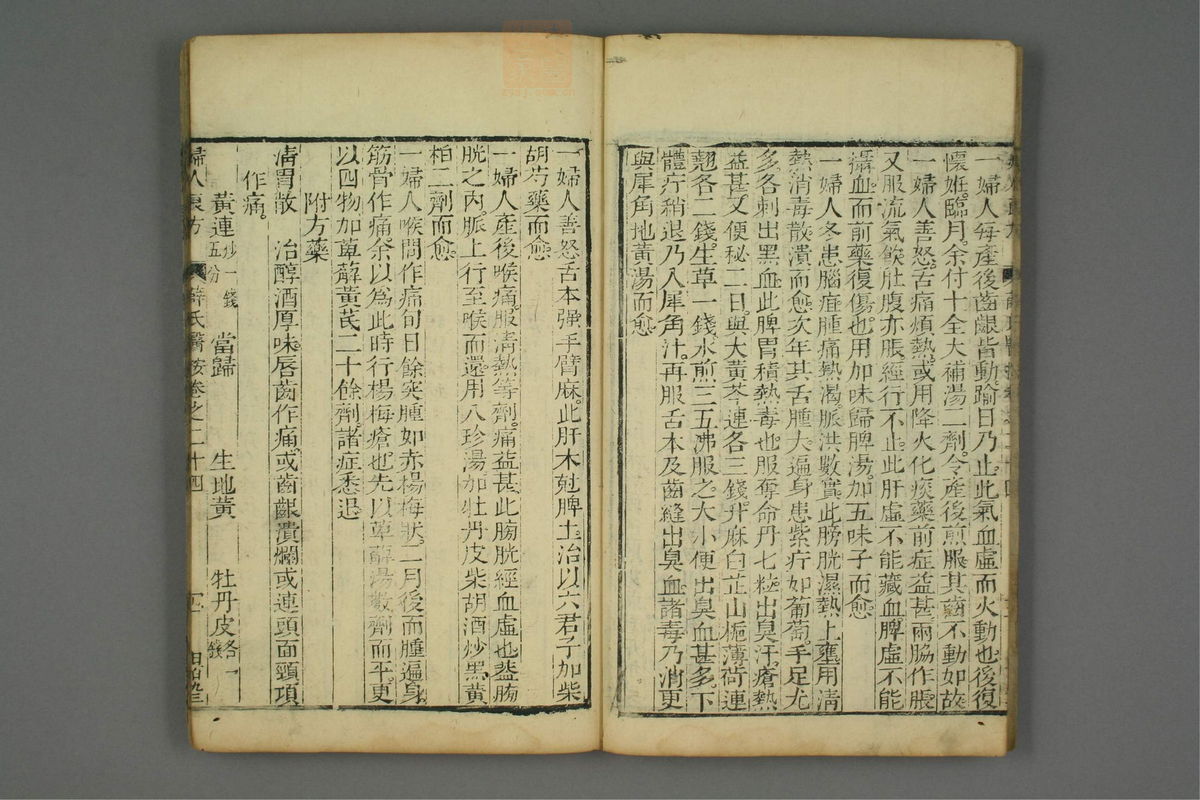 一婦人每產後齒齦皆動踰日乃止此氣血虛而火動也後復
懷妊臨月余付十全大補湯二劑令產後煎服其齒不動如故
一婦人善怒舌痛煩熱或用降火化痰藥前症益甚兩脇作脹
又服流氣飲肚腹亦脹經行不止此肝虛不能藏血脾虛不能
攝血而前藥復傷也用加味歸脾湯加五味子而愈
一婦人冬患腦疽腫痛熱渴脈洪數實此膀胱濕熱上壅用清
熱消毒散潰而愈次年其舌腫大遍身患紫疔如葡萄手足尤
多各刺出黑血此脾胃積熱毒也服奪命丹七粒出臭汗瘡熱
益甚又便秘二日與大黃芩連各三錢升麻白芷山梔薄荷連
翹各二錢生草一錢水煎三五沸服之大小便出臭血甚多下
體疔稍退乃入犀角汁再服舌本及齒縫出臭血諸毒乃消更
與犀角地黃湯而愈
一婦人善怒舌本强手臂麻此肝木尅脾土治以六君子加柴
胡芍藥而愈
一婦人產後喉痛服清熱等劑痛益甚此膀胱經血虛也盖膀
胱之內脈上行至喉而還用八珍湯加牡丹皮柴胡酒炒黑黃
柏二劑而愈
一婦人喉間作痛旬日餘突腫如赤楊梅狀二月後而腫遍身
筋骨作痛余以為此時行楊梅瘡也先以萆薢湯數劑而平更
以四物加萆薢黃芪二十餘劑諸症悉退
附方藥
清胃散 治醇酒厚味唇齒作痛或齒齦潰爛或連頭面頸項
作痛
黃連炒一錢五分 當歸 生地黃 牡丹皮各一錢
婦人良方 薛氏醫按卷之二十四